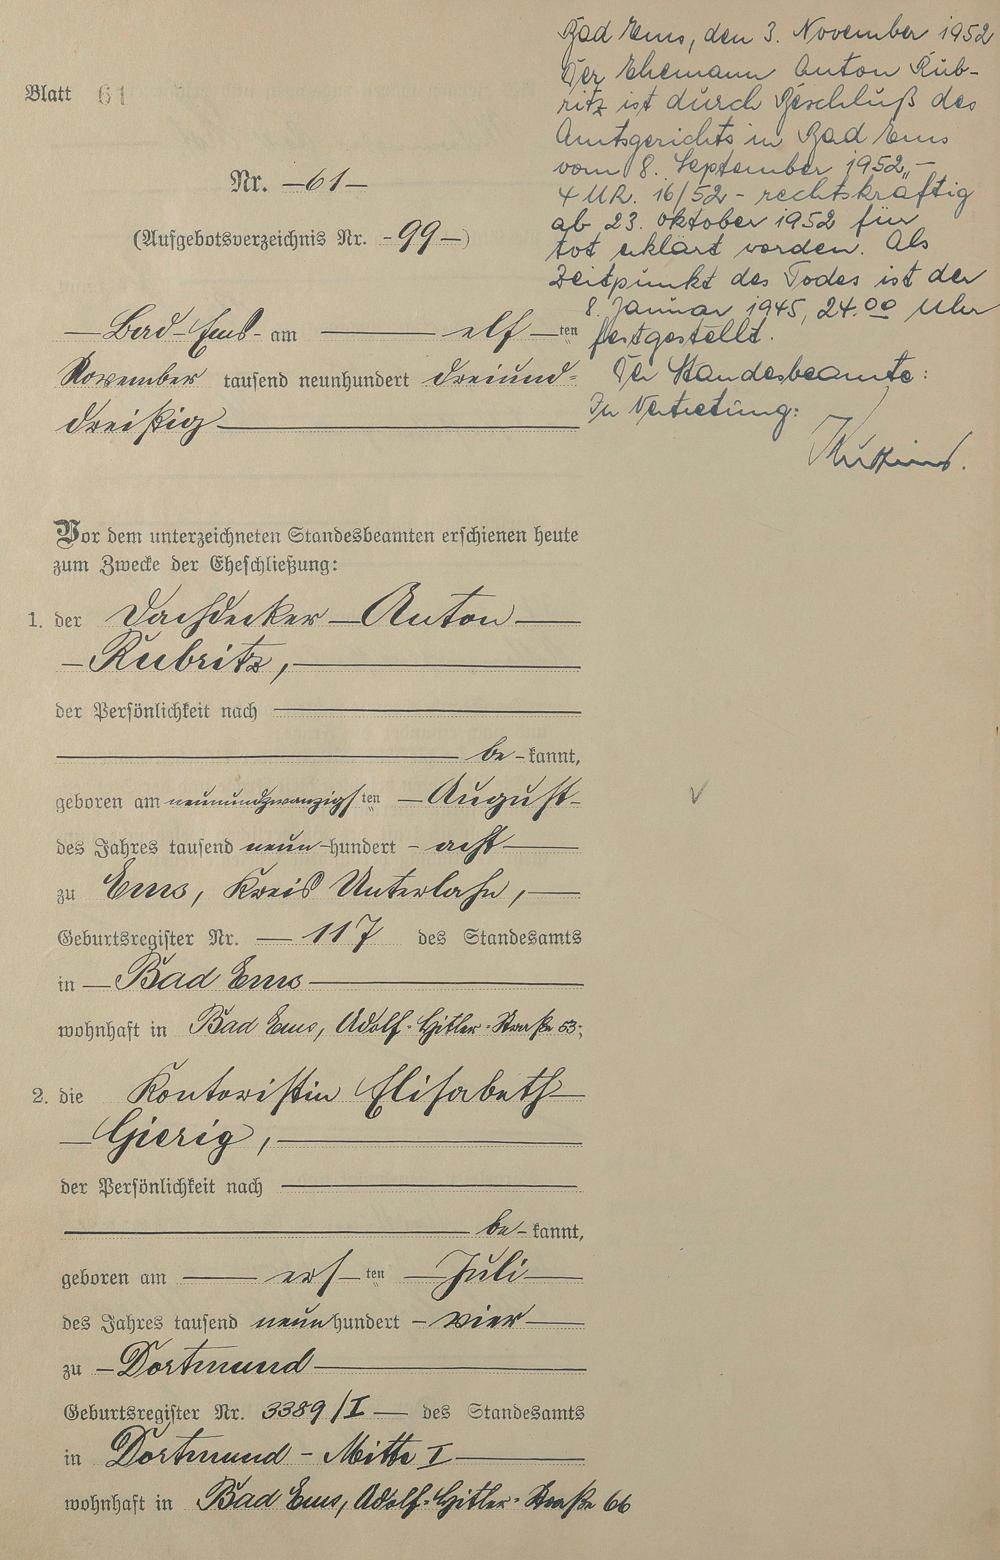 Blatt 61
Nr. —61—
(Aufgebotsverzeichnis Nr. -99—)
—Bad-Ems- am —— elf —ten
November tausend neunhundert dreiund-
dreißig ——
Bad Ems, den 3. November 1952
Der Ehemann Anton Rub-
ritz ist durch Beschluß des
Amtsgerichts in Bad Ems
vom 8. September 1952, -
4 UR. 16/52 - rechtskräftig
ab 23. Oktober 1952 für
tot erklärt worden. Als
Zeitpunkt des Todes ist der
8. Januar 1945, 24.00 Uhr
festgestellt.
Der Standesbeamte:
In Vertretung:
Vor dem unterzeichneten Standesbeamten erschienen heute
zum Zwecke der Eheschließung:
1. der Dachdecker — Anton —
—Rubritz, ——
der Persönlichkeit nach ——
—— be-kannt,
geboren am neunundzwanzigsten —August-
des Jahres tausend neun-hundert - acht —
zu Ems, Kreis Unterlahn, —
Geburtsregister Nr. — 117 des Standesamts
in — Bad Ems ——
wohnhaft in Bad Ems, Adolf-Hitler-Straße 53;
2. die Kontoristin Elisabeth —
—Gierig, ——
der Persönlichkeit nach ——
—— be-kannt,
geboren am —— ers—ten —Juli—
des Jahres tausend neunhundert - vier —
zu —Dortmund ——
Geburtsregister Nr. 3389/I — des Standesamts
in Dortmund - Mitte I ——
wohnhaft in Bad Ems, Adolf-Hitler-Straße 66